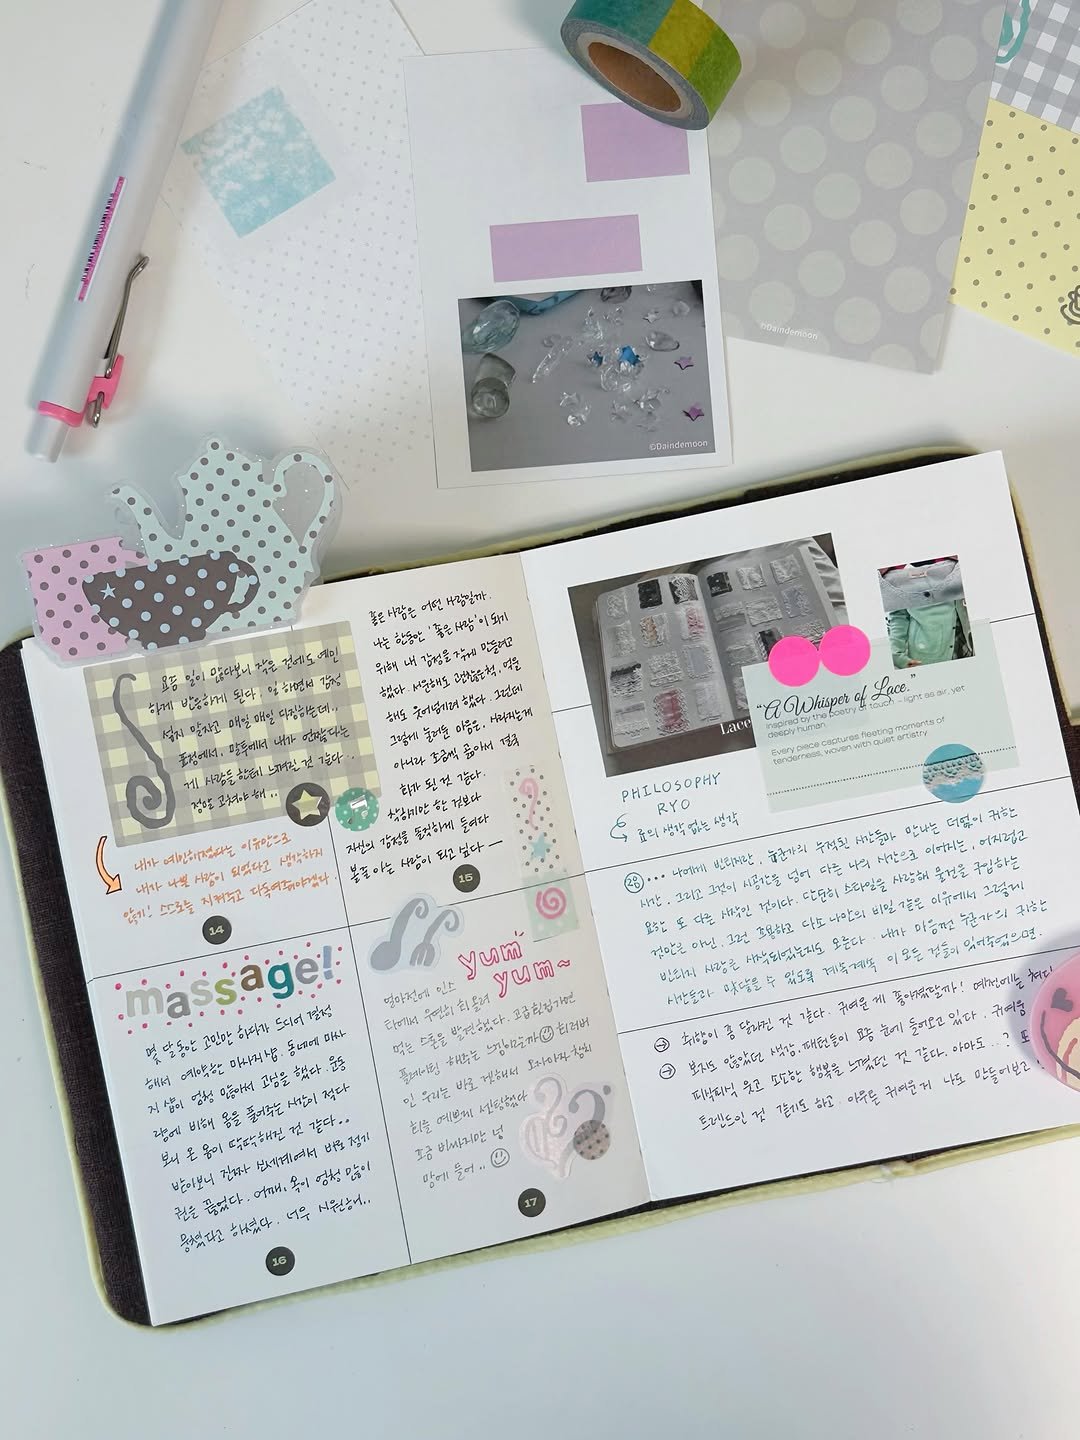 ©Daindemoon
©Daindemoon
요즘 일이 많다보니 작은 것에도 예민
하게 반응하게 된다. 일 하면서 감정
섞지 말자고 매일 매일 다짐하는데..
표정에서, 말투에서 내가 언짢다는
게 사람들한테 느껴진 것 같다..
정말 고쳐야 해..
내가 예민해졌다는 이유만으로
내가 나쁜 사람이 되었다고 생각하지
않기! 스스로를 지켜주고 다독여줘야겠다
14
좋은 사람은 어떤 사람일까.
나는 한동안 '좋은 사람'이 되기
위해 내 감정을 작게 만들려고
했다. 서운해도 괜찮은척, 억울
해도 웃어넘기려 했다. 그런데
그렇게 눌러둔 마음은, 사라지는게
아니라 조금씩 곪아서 결국
화가 된 것 같다.
착하기만 한 것보다
자신의 감정을 솔직하게 들여다
볼줄 아는 사람이 되고 싶다 —
15
massage!
몇 달동안 고민만 하다가 드디어 결정
해서 예약한 마사지샵. 동네에 마사
지 샵이 엄청 많아서 고심을 했다. 운동
량에 비해 몸을 풀어주는 시간이 적다
보니 온 몸이 딱딱해진 것 같다..
받아보니 진짜 신세계여서 바로 정기
권을 끊었다. 어깨, 목이 엄청 많이
뭉쳤다고 하셨다. 너무 시원해..
16
yum
yum~
얼마전에 인스
타에서 우연히 티 올려
먹는 스푼을 발견했다. 고급 찻집 가면
플레이팅 해주는 느낌이랄까 티러버
인 우리는 바로 구매해서 오자마자 찻잔
티를 예쁘게 세팅했다
조금 비싸지만 넘
맘에 들어..
17
Lace
"A Whisper of Lace."
Inspired by the poetry of touch – light as air, yet
deeply human.
Every piece captures fleeting moments of
tenderness, woven with quiet artistry
PHILOSOPHY
RYO
료의 생각 없는 생각
... 나에게 빈티지란, 누군가의 축적된 시간들과 만나는 더없이 귀한
시간. 그리고 그것이 시공간을 넘어 다른 나의 시간으로 이어지는, 어지럽고
묘한 또 다른 시작인 것이다. 단단히 스타일을 사랑해 물건을 구입하는
것만은 아닌, 그런 초월하고 다소 나만의 비밀 같은 이유에서 그렇게
빈티지 사랑은 시작되었는지도 모른다. 내가 마음껏 누군가의 귀한
시간들과 맞닿을 수 있도록 계속계속 이 모든 것들이 있어주었으면.
취향이 좀 달라진 것 같다. 귀여운 게 좋아졌달까! 예전에는 쳐다
보지도 않았던 색감, 패턴들이 요즘 눈에 들어오고 있다. 귀여움
피식피식 웃고 소소한 행복을 느꼈던 것 같다. 아마도..?
트렌드인 것 같기도 하고. 아무튼 귀여운거 나도 만들어보고